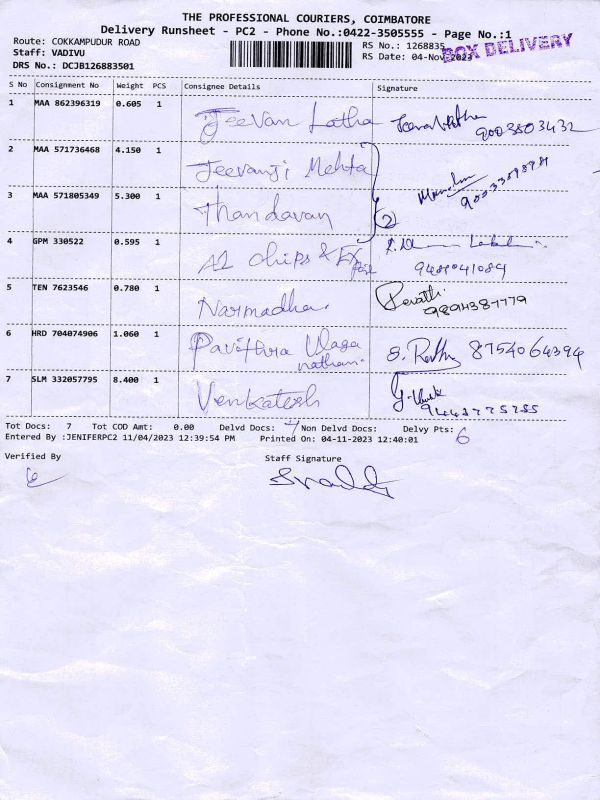 THE PROFESSIONAL COURIERS, COIMBATORE
Delivery Runsheet - PC2 - Phone No.:0422-3505555 - Page No.:1
Route: COKKAMPUDUR ROAD
RS No.: 1268835
BOX DELIVERY
Staff: VADIVU
RS Date: 04-Nov-2023
DRS No.: DCJB126883501
S No Consignment No Weight PCS Consignee Details Signature
1 MAA 862396319 0.605 1 Jeevan Latha
2 MAA 571736468 4.150 1 Jeevanji Mehta
3 MAA 571805349 5.300 1 Thandavan 2
4 GPM 330522 0.595 1 A1 chips & 9489041089
5 TEN 7623546 0.780 1 Narmadha. Revathi
9894387779
6 HRD 704074906 1.060 1 Pavithra Ulaga
nathan. 8754064394
7 SLM 332057795 8.400 1 Venkatesh
Tot Docs: 7 Tot COD Amt: 0.00 Delvd Docs: 7 Non Delvd Docs: Delvy Pts: 6
Entered By :JENIFERPC2 11/04/2023 12:39:54 PM Printed On: 04-11-2023 12:40:01
Verified By Staff Signature